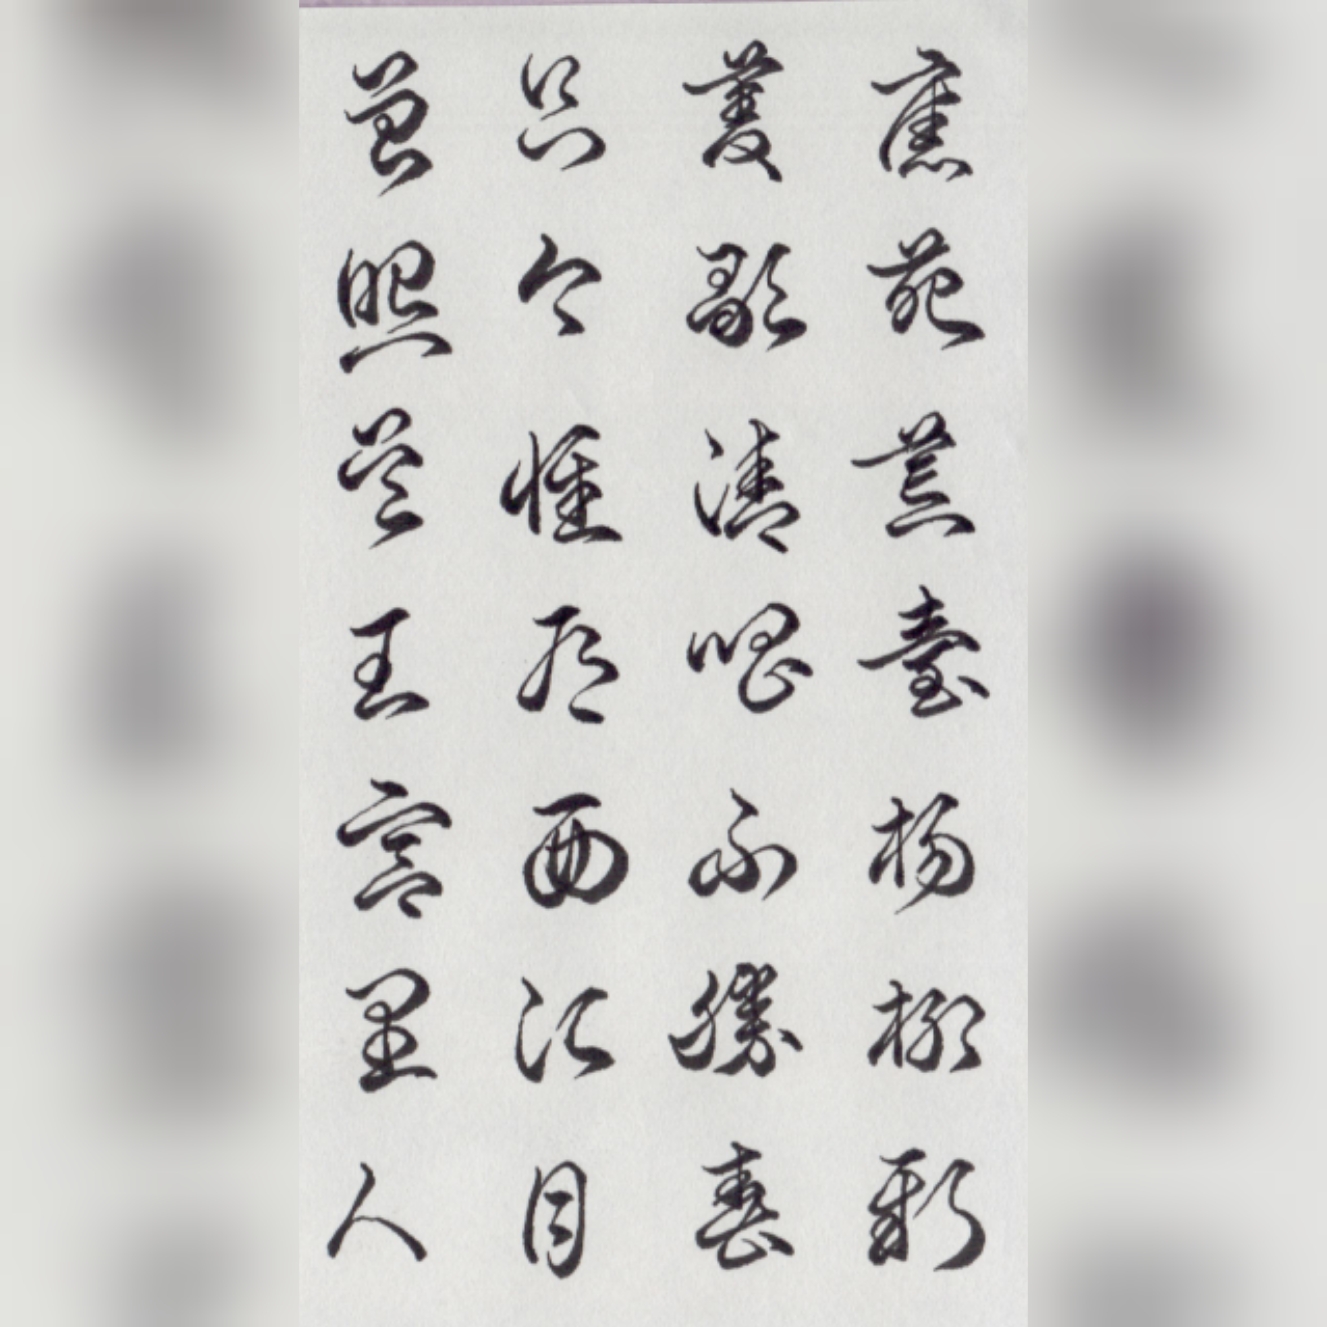 舊苑荒臺楊柳新
菱歌清唱不勝春
只今惟有西江月
曾照吳王宮裏人